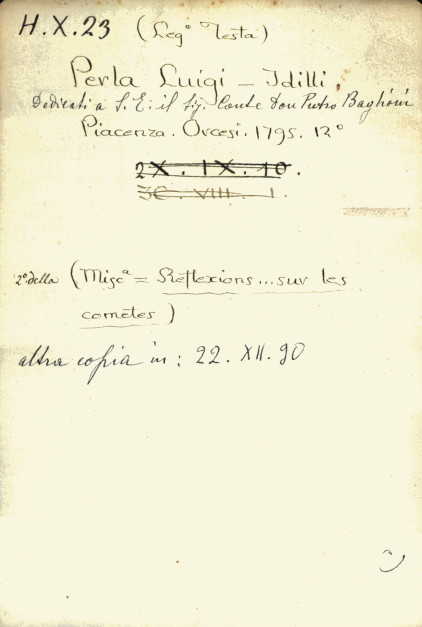 H.X.23 (Legº Testa)
Perla Luigi – Idilli,
Dedicati a S. E. il Sig. Conte Don Pietro Baglioni
Piacenza. Orcesi. 1795. 12º
2X. IX. 10.
3C. VIII. 1.
2º della (Miscª = Réflexions... sur les
comètes)
altra copia in: 22. XII. 90